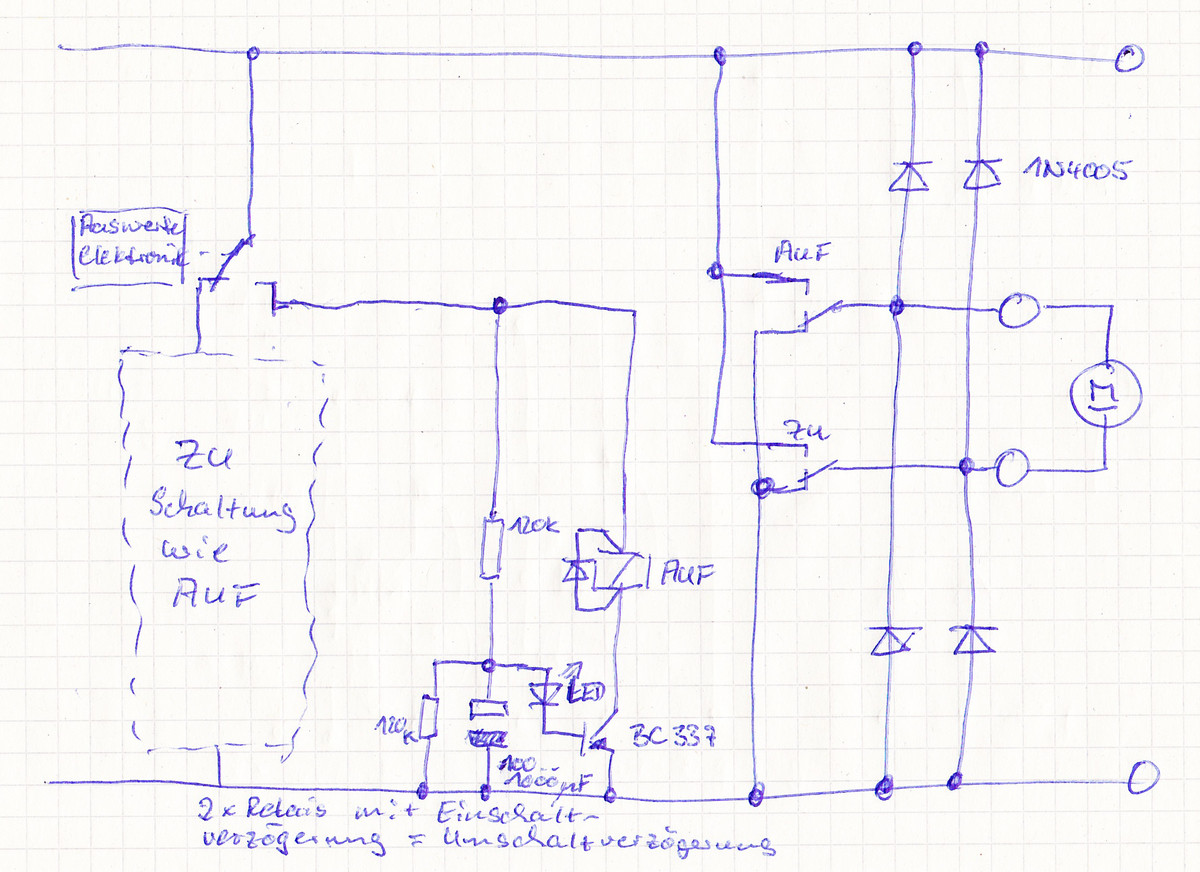 1N4005
Auswerte
Elektronik
AUF
M
ZU
ZU
Schaltung
wie
AUF
120k
AUF
LED
120k
BC 337
100...
1000µF
2x Relais mit Einschalt-
verzögerung = Umschaltverzögerung